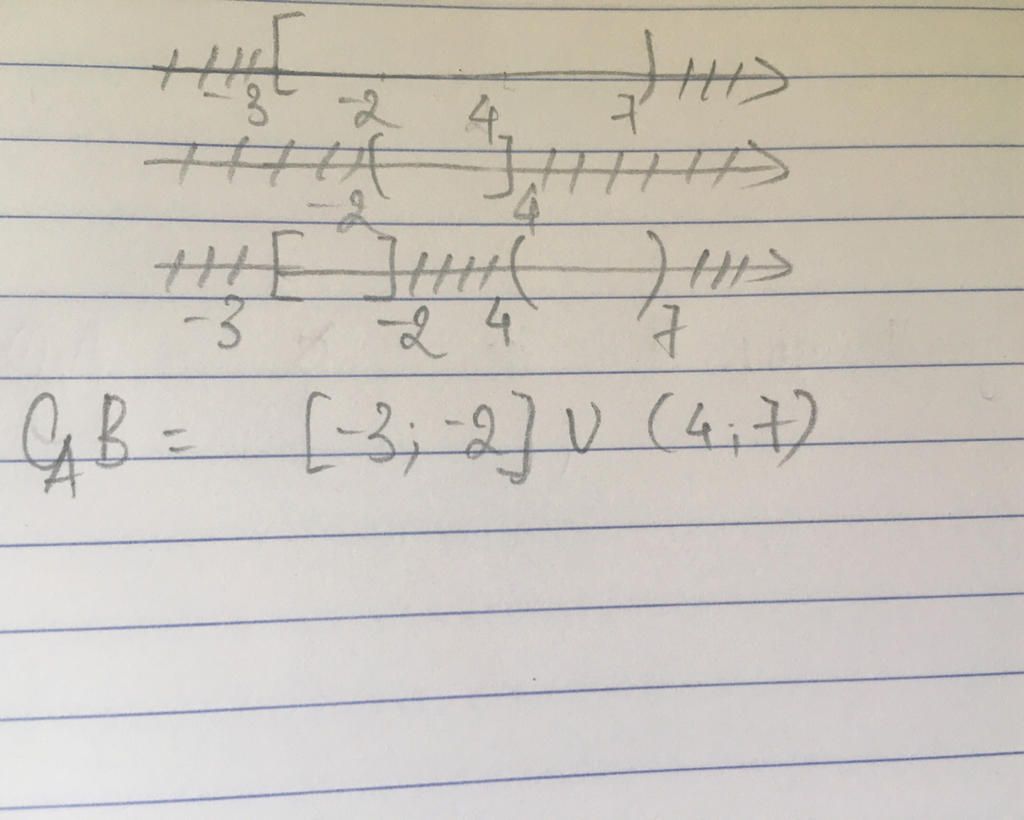 [ )
-3 -2 4 7
( ]
-2 4
[ ] ( )
-3 -2 4 7
C_A B = [-3; -2] ∪ (4; 7)